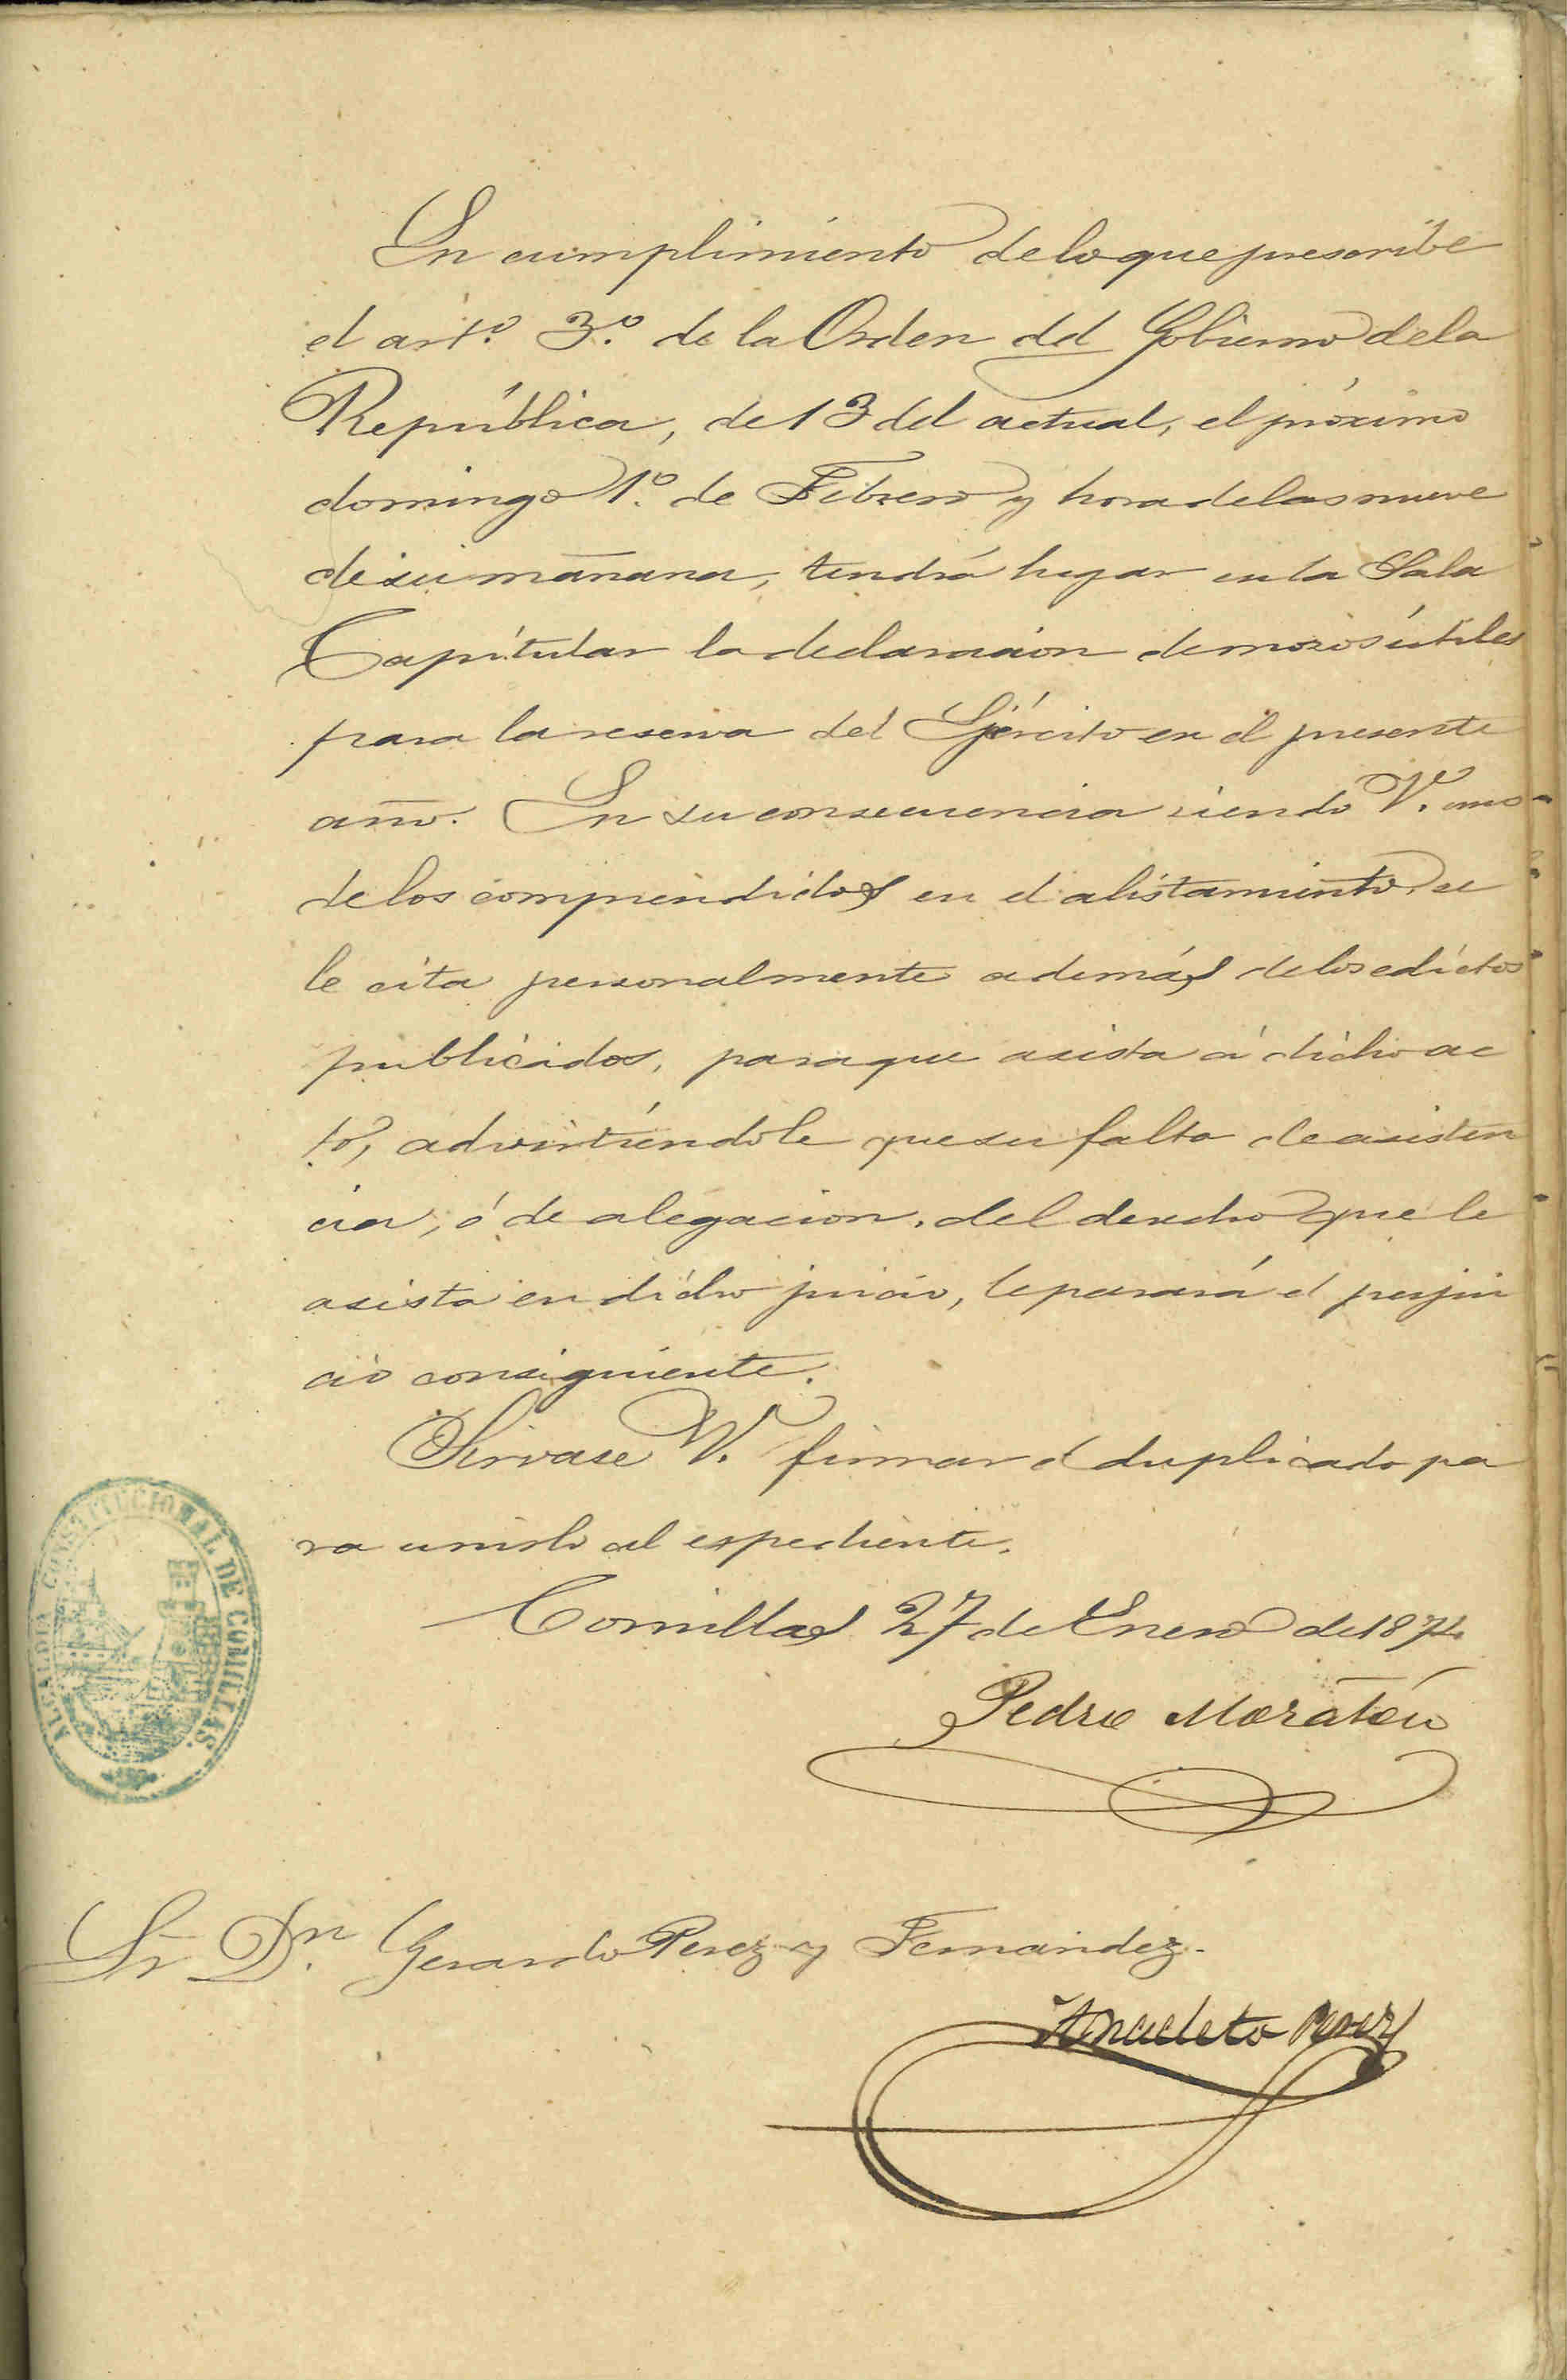 En cumplimiento de lo que prescribe
el art.º 3.º de la Orden del Gobierno de la
República, de 13 del actual, el próximo
domingo 1.º de Febrero y hora de las nueve
de su mañana, tendrá lugar en la Sala
Capitular la declaracion de mozos útiles
para la reserva del Ejército en el presente
año. En su consecuencia siendo V. uno
de los comprendidos en el alistamiento se
le cita personalmente además de los edictos
publicados, para que asista á dicho ac
to, advirtiéndole que su falta de asisten
cia, ó de alegacion, del derecho que le
asista en dicho juicio, le parará el perjui
cio consiguiente.
Sirvase V. firmar el duplicado pa
ra unirlo al espediente.
Comillas 27 de Enero de 1874.
Pedro Moratéu
ALCALDIA CONSTITUCIONAL DE COMILLAS.
Sr. Dn. Gerardo Perez y Fernandez.
Anacleto Perez